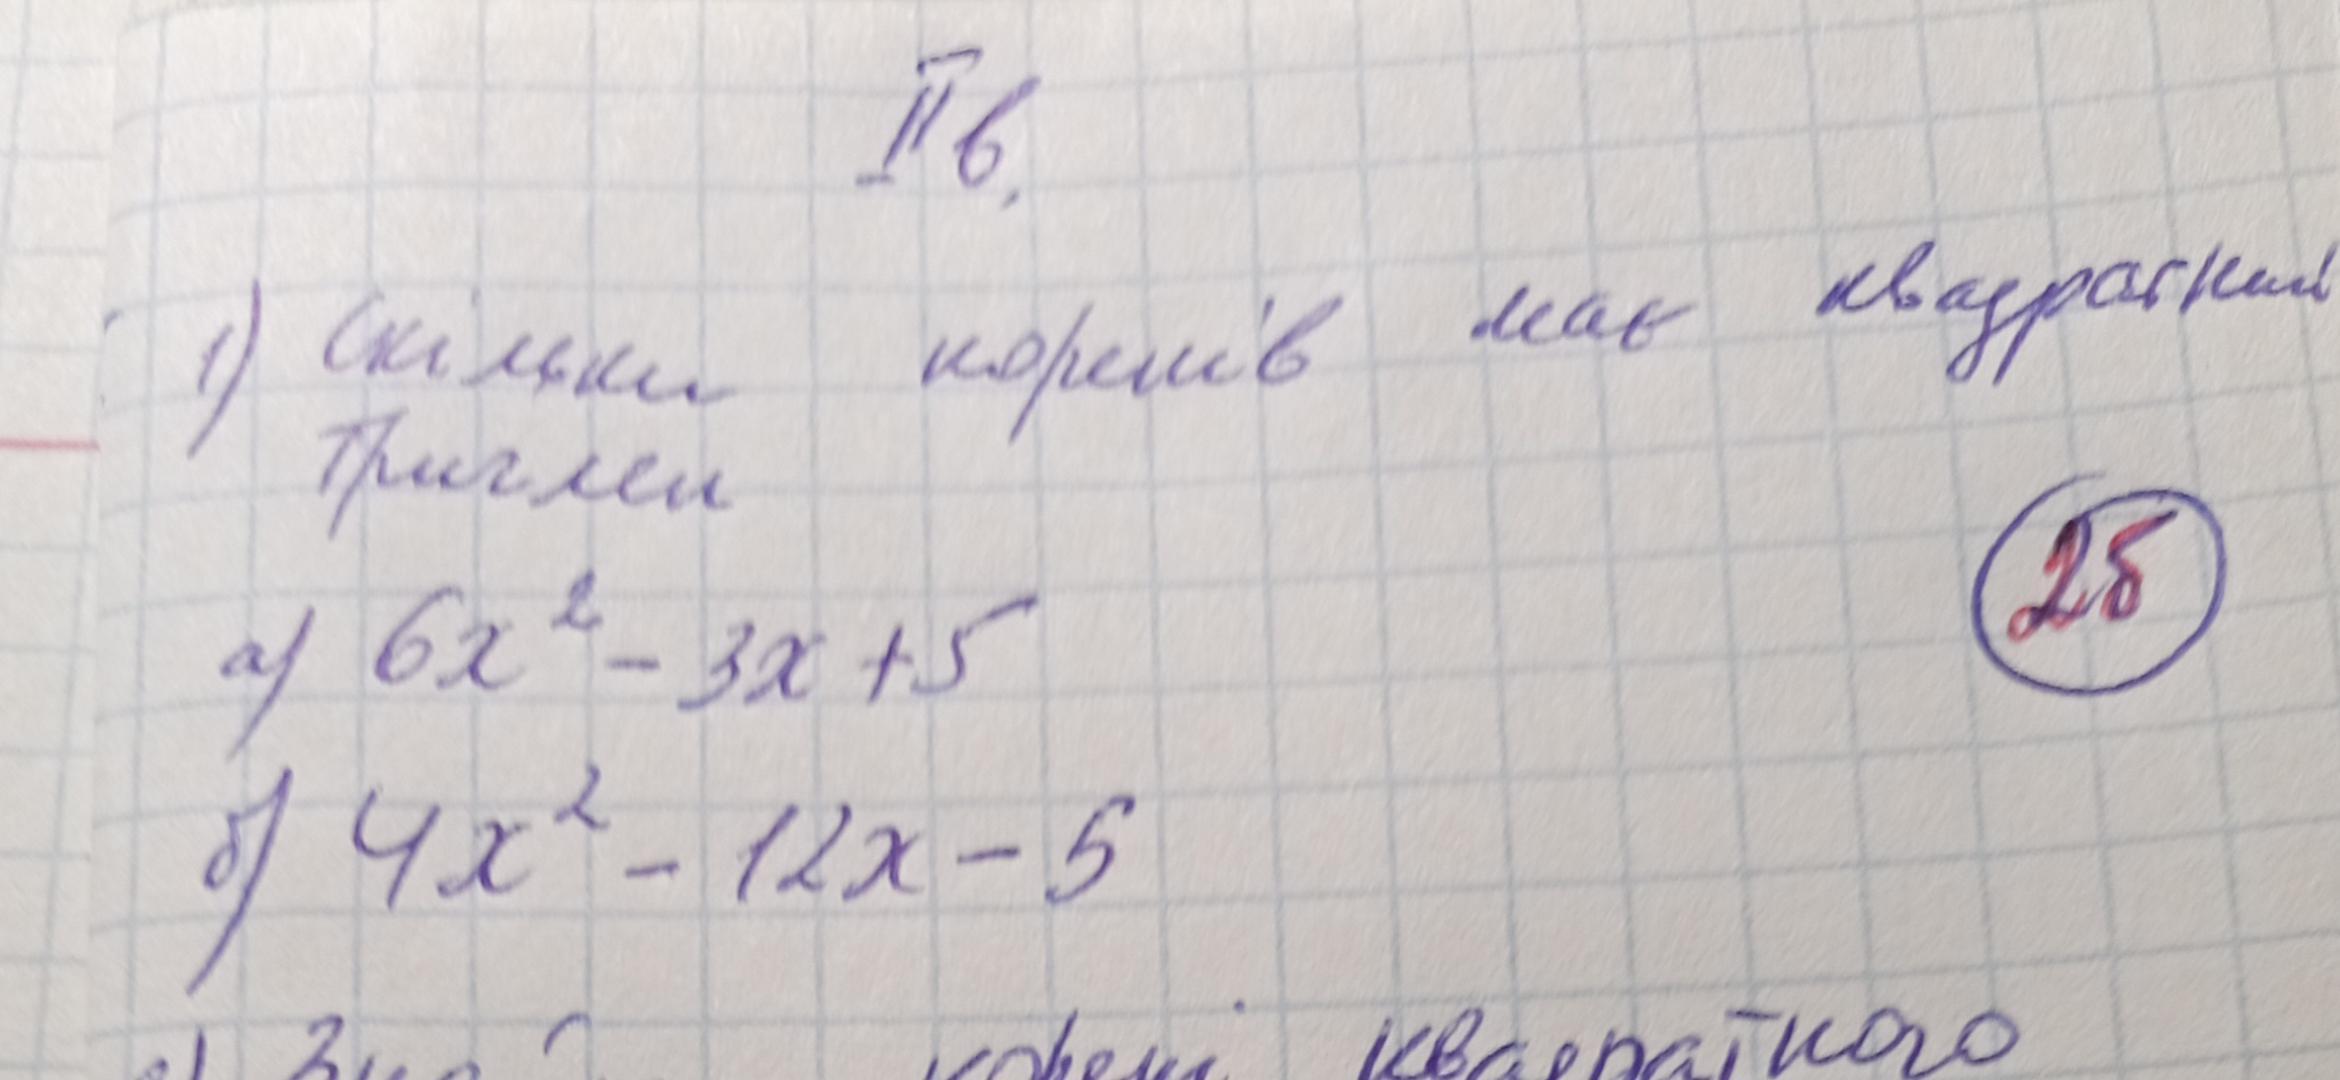 IIв.
1) Скільки коренів має квадратний
тричлен
2б
а) 6x² - 3x + 5
б) 4x² - 12x - 5
корені квадратного